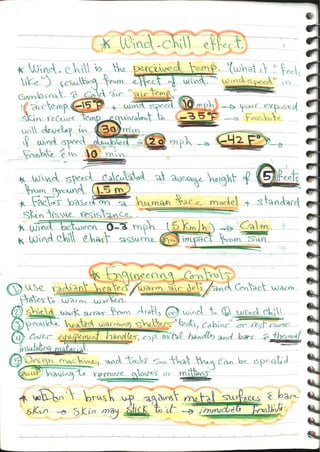 * Wind-chill effect.
* Wind-chill is the perceived temp. "(what it "feels
like") resulting from effect of wind "wind speed" in
combinat. & Cold air "air temp."
(air temp. -15°F + wind speed 10 mph) → your exposed
skin receive Temp. equivalent to -35°F → Frostbite
will develop in 30 min.
if wind speed doubled = 20 mph → -42 F°
Frostbite in 10 min.
* Wind speed calculated at average height of 5 feets
from ground 1.5 m
* Factors based on a human face model + standard
Skin tissue resistance.
* Wind between 0-3 mph (5 Km/h) → Calm.
* Wind chill chart assume no impact from Sun.
* Engineering Controls
① Use radiant heaters / warm air jets / and Contact warm
Plates to warm worker.
② Shield work areas from drafts or wind to ↓ wind chill
③ provide heated warming shelters "tents, cabins or rest rooms
④ Cover equipement handles, esp. metal handles and bars & thermal
insulating material
⑤ Design machines and tasks so that they can be operated
without having to remove gloves or mittens
* Don't brush up against metal surfaces & bare
Skin → skin may stick to it → immediate frostbite.